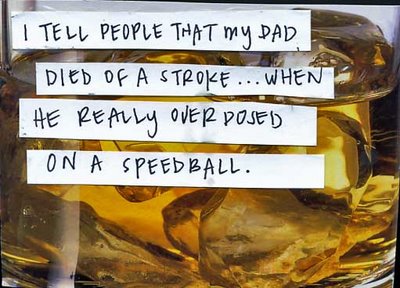 I TELL PEOPLE THAT MY DAD
DIED OF A STROKE...WHEN
HE REALLY OVERDOSED
ON A SPEEDBALL.